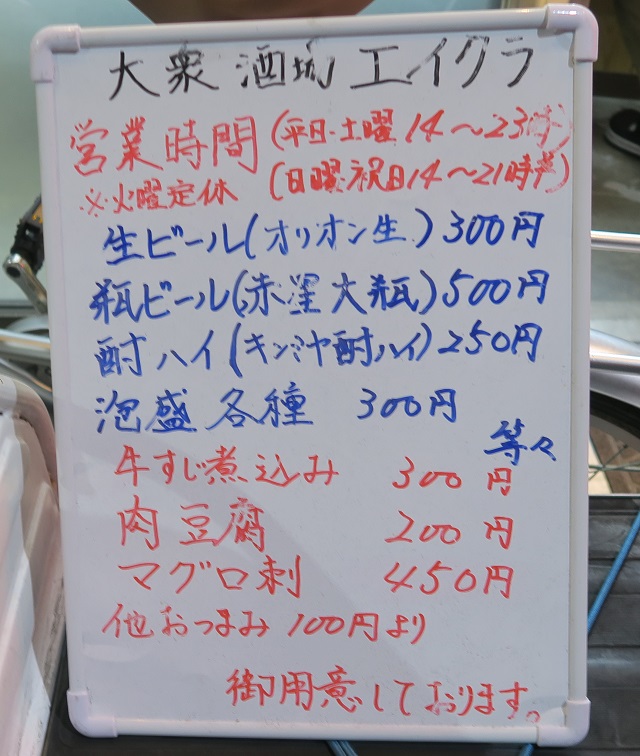 大衆酒場エイクラ
営業時間(平日・土曜14～23時)
※火曜定休 (日曜・祝日14～21時半)
生ビール(オリオン生)300円
瓶ビール(赤星大瓶)500円
酎ハイ(キンミヤ酎ハイ)250円
泡盛各種 300円
等々
牛すじ煮込み 300円
肉豆腐 200円
マグロ刺 450円
他おつまみ100円より
御用意しております。